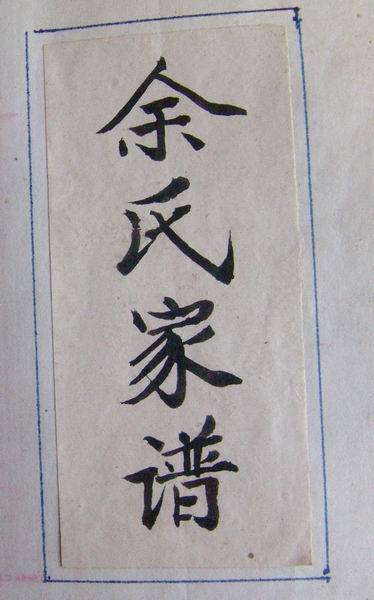 余氏家谱